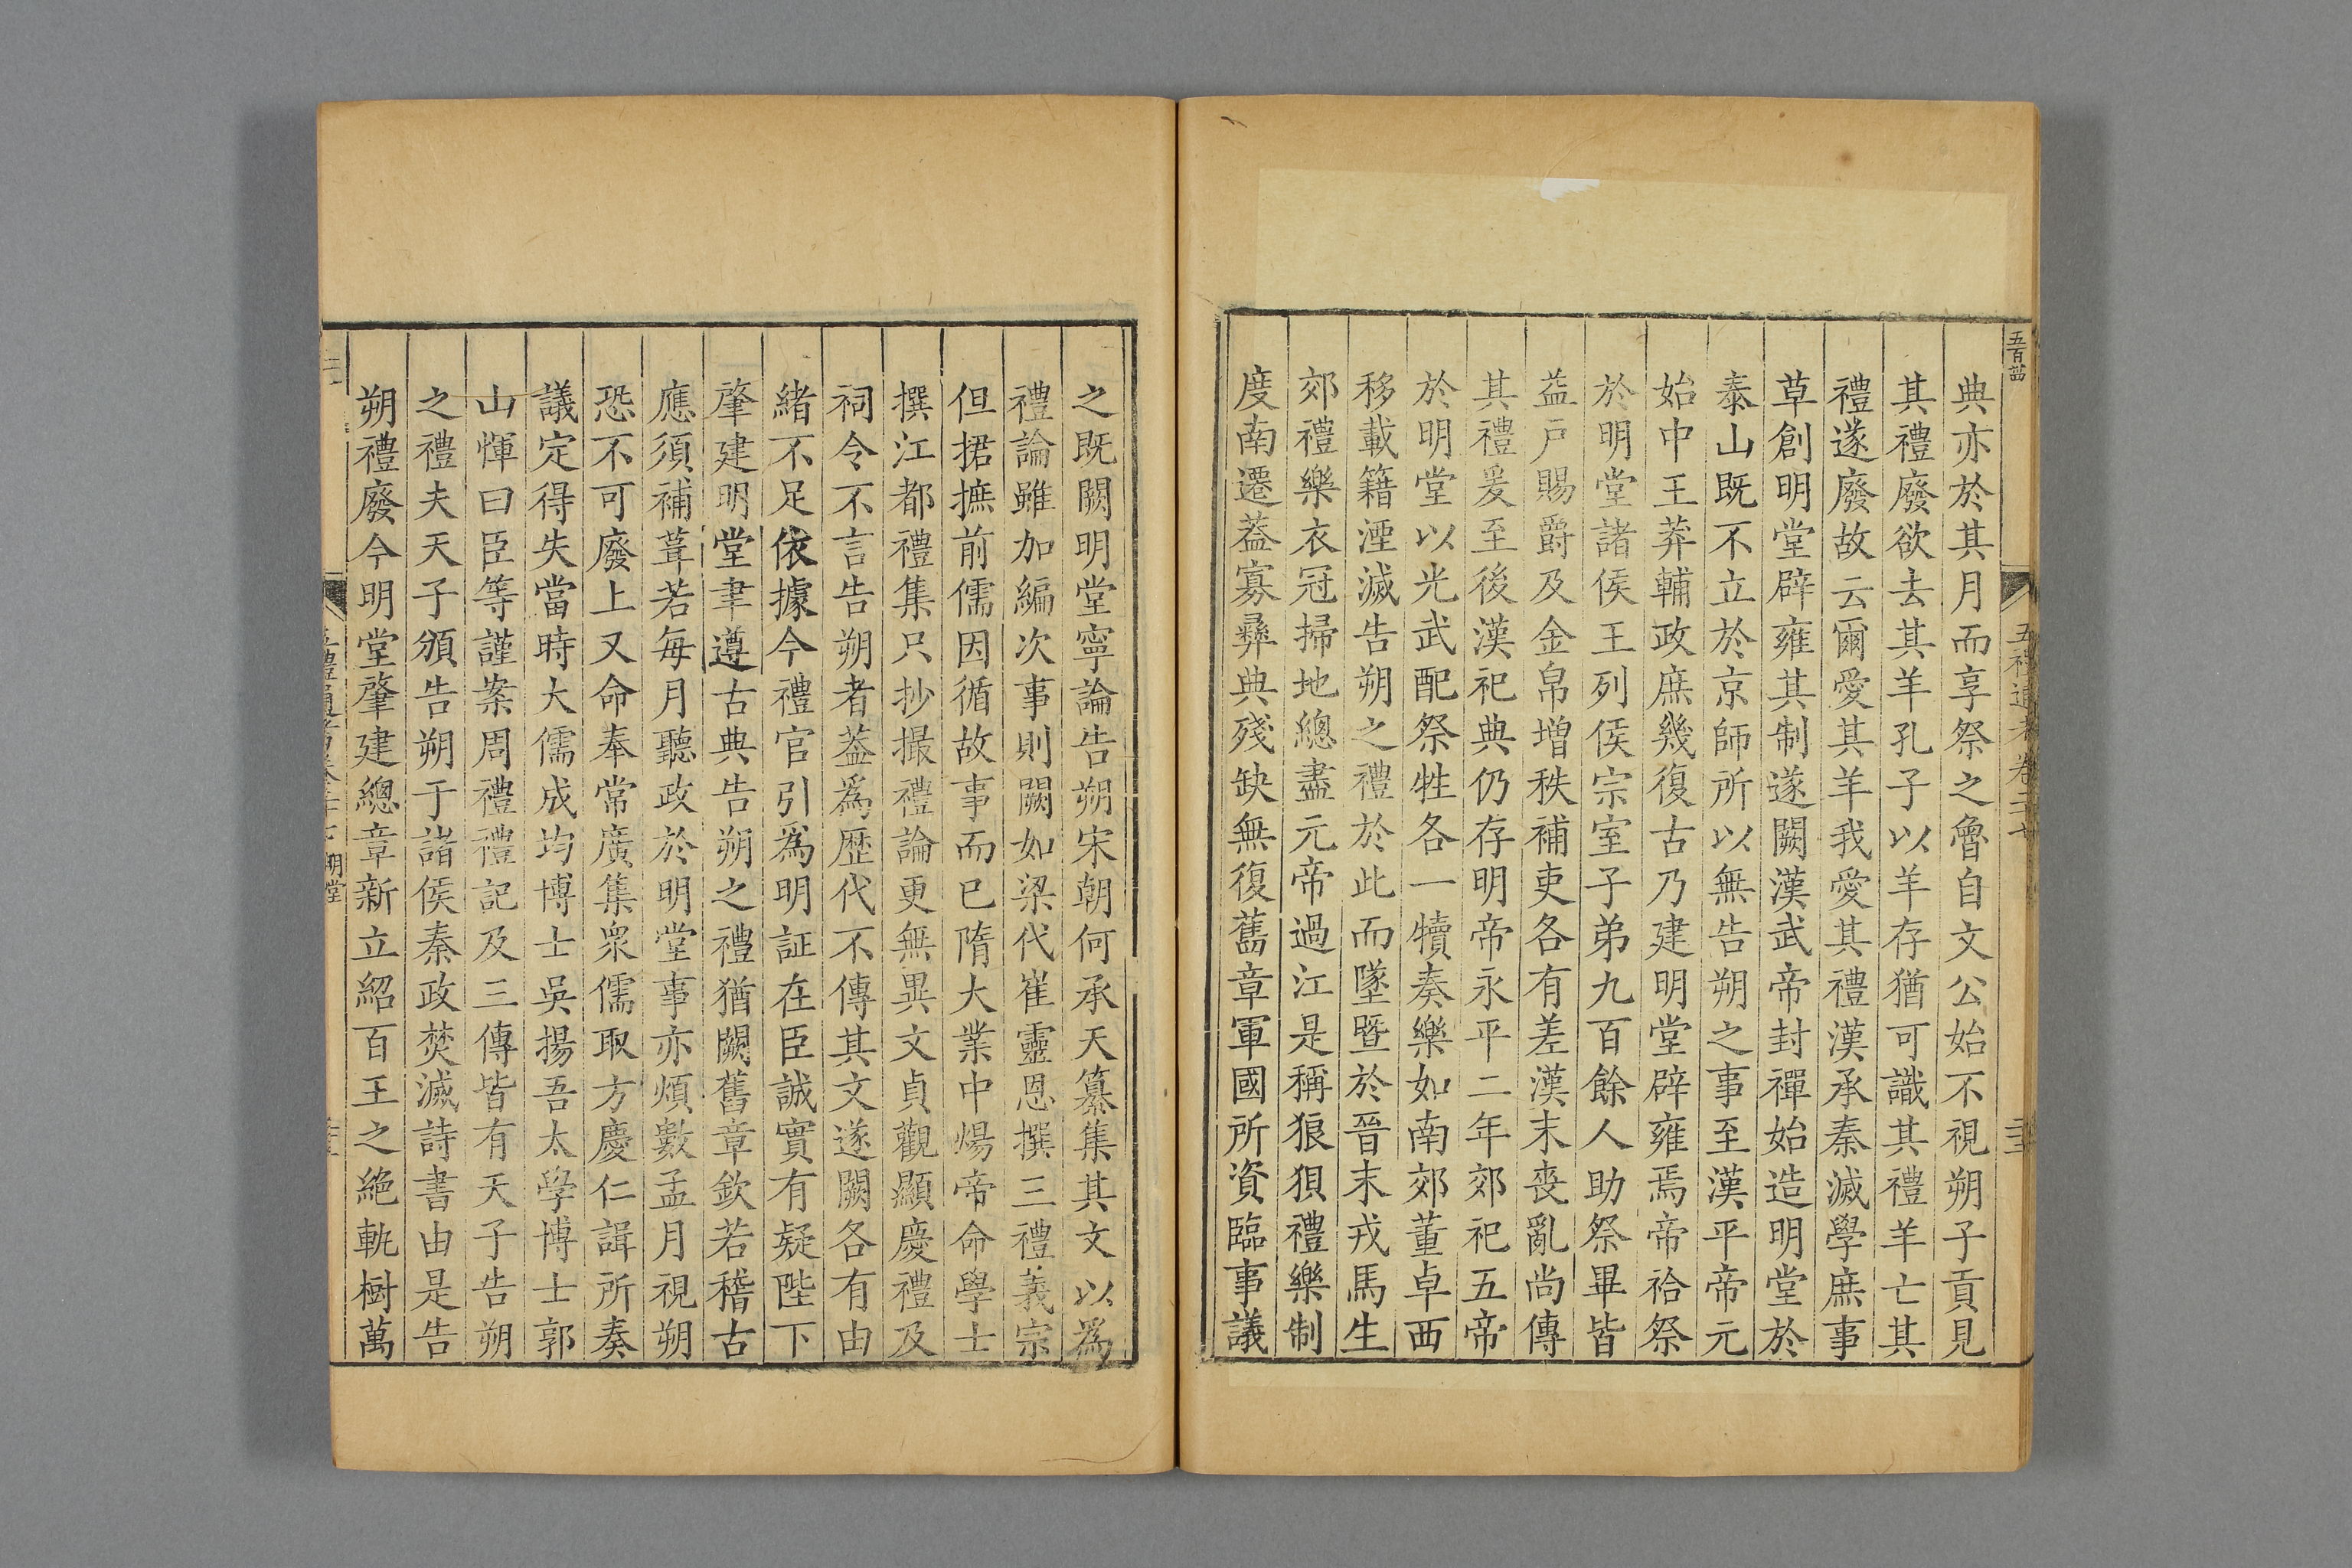 五禮通考卷二十七
典亦於其月而享祭之魯自文公始不視朔子貢見
其禮廢欲去其羊孔子以羊存猶可識其禮羊亡其
禮遂廢故云爾愛其羊我愛其禮漢承秦滅學庶事
草創明堂辟雍其制遂闕漢武帝封禪始造明堂於
泰山既不立於京師所以無告朔之事至漢平帝元
始中王莽輔政庶幾復古乃建明堂辟雍焉帝祫祭
於明堂諸侯王列侯宗室子弟九百餘人助祭畢皆
益戸賜爵及金帛增秩補吏各有差漢末喪亂尚傳
其禮爰至後漢祀典仍存明帝永平二年郊祀五帝
於明堂以光武配祭牲各一犢奏樂如南郊董卓西
移載籍湮滅告朔之禮於此而墜暨於晉末戎馬生
郊禮樂衣冠掃地總盡元帝過江是稱狼狽禮樂制
度南遷葢寡彛典殘缺無復舊章軍國所資臨事議
之既闕明堂寧論告朔宋朝何承天纂集其文以爲
禮論雖加編次事則闕如梁代崔靈恩撰三禮義宗
但捃摭前儒因循故事而已隋大業中煬帝命學士
撰江都禮集只抄撮禮論更無異文貞觀顯慶禮及
祠令不言告朔者葢爲歷代不傳其文遂闕各有由
緒不足依據今禮官引爲明証在臣誠實有疑陛下
肇建明堂聿遵古典告朔之禮猶闕舊章欽若稽古
應須補葺若每月聽政於明堂事亦煩數孟月視朔
恐不可廢上又命奉常廣集衆儒取方慶仁諝所奏
議定得失當時大儒成均博士吳揚吾太學博士郭
山惲曰臣等謹案周禮禮記及三傳皆有天子告朔
之禮夫天子頒告朔于諸侯秦政焚滅詩書由是告
朔禮廢今明堂肇建總章新立紹百王之絶軌樹萬
明堂